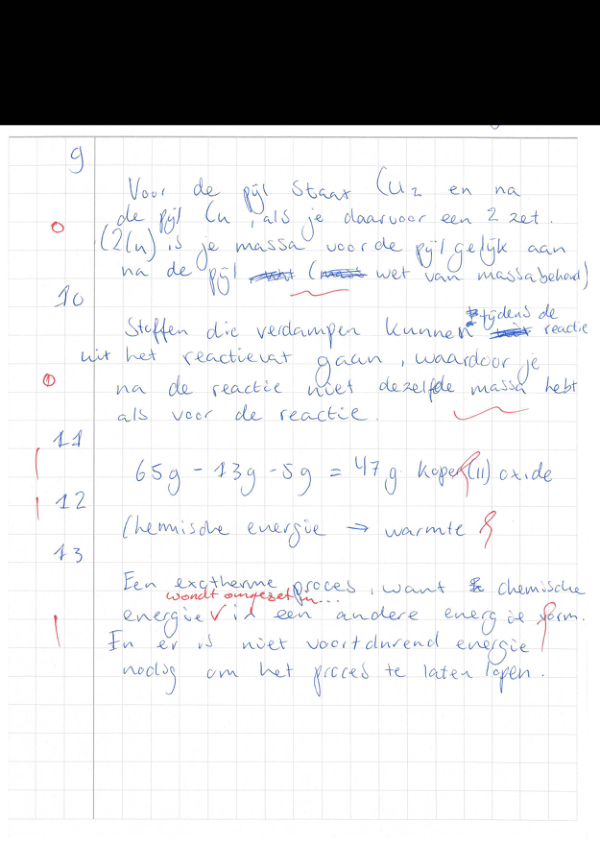 9
Voor de pijl staat Cu2 en na
de pijl Cu, als je daarvoor een 2 zet.
(2Cu) is je massa voor de pijl gelijk aan
na de pijl (wet van massabehoud)
10
Stoffen die verdampen kunnen tijdens de reactie
uit het reactievat gaan, waardoor je
na de reactie niet dezelfde massa hebt
als voor de reactie.
11
65g - 13g - 5g = 47g koper(II) oxide
12
Chemische energie → warmte
13
Een exotherme proces, want chemische
wordt omgezet in...
energie V in een andere energie form.
En er is niet voortdurend energie
nodig om het proces te laten lopen.